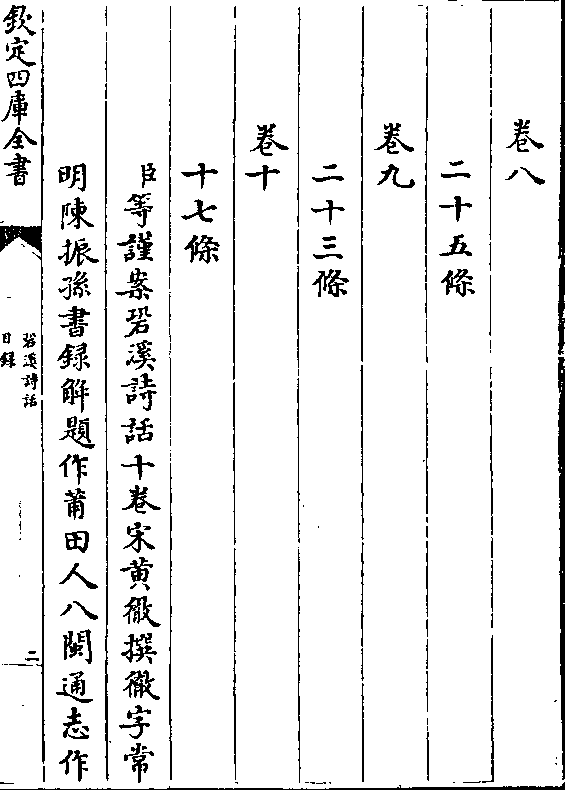 卷八
二十五條
卷九
二十三條
卷十
十七條
臣等謹案䂬溪詩話十卷宋黄徹撰徹字常
明陳振孫書録解題作莆田人八閩通志作
欽定四庫全書
䂬溪詩話
目録
二